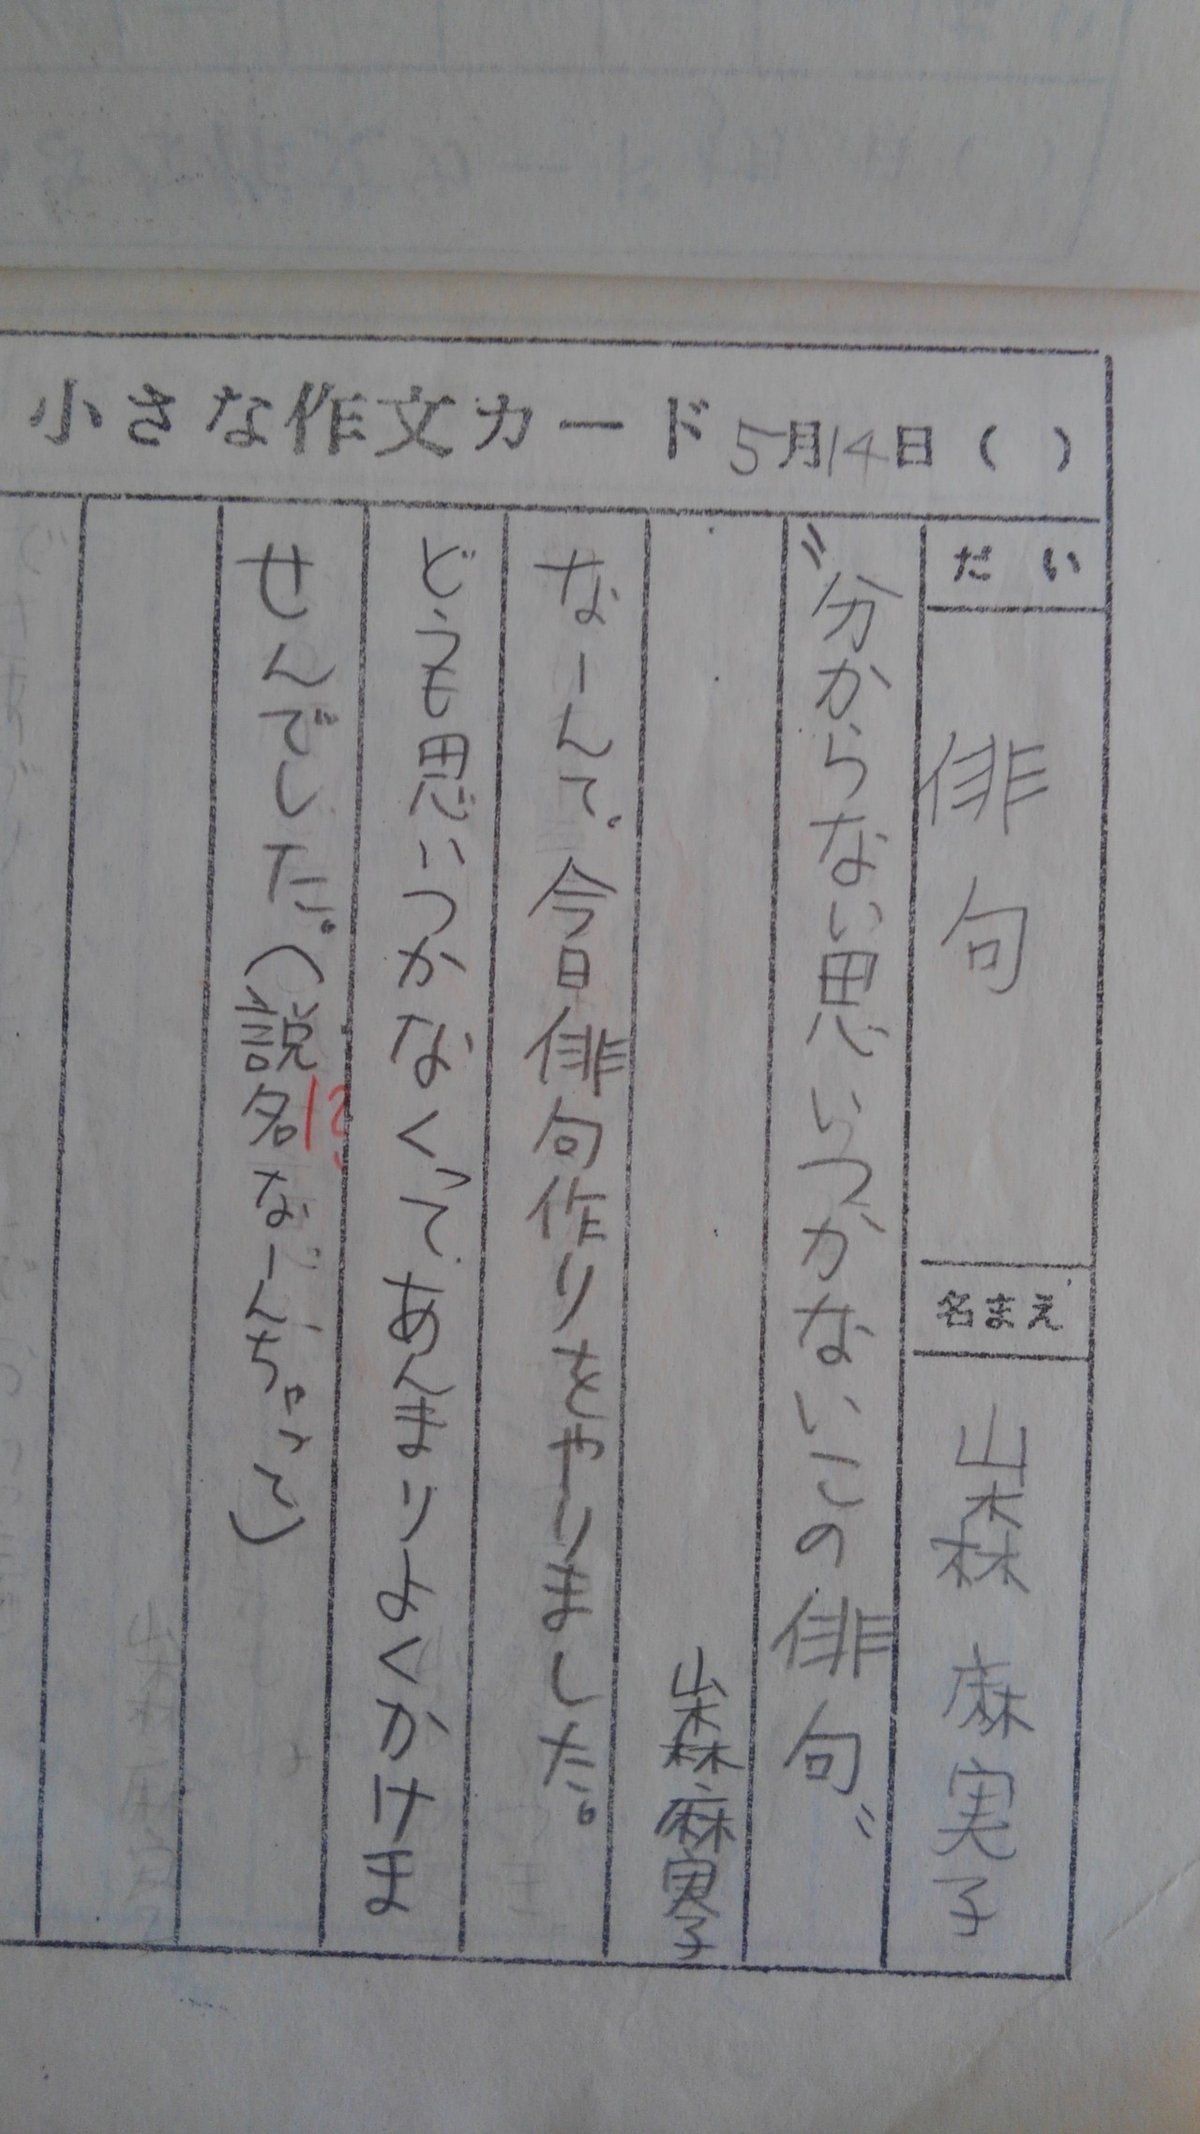 小さな作文カード 5月14日( )
だい 俳句 名まえ 山森 麻実子
〝分からない思いつかないこの俳句〟
山森麻実子
なーんて。今日俳句作りをやりました。
どうも思いつかなくって、あんまりよくかけま
せんでした。(説名なーんちゃって)